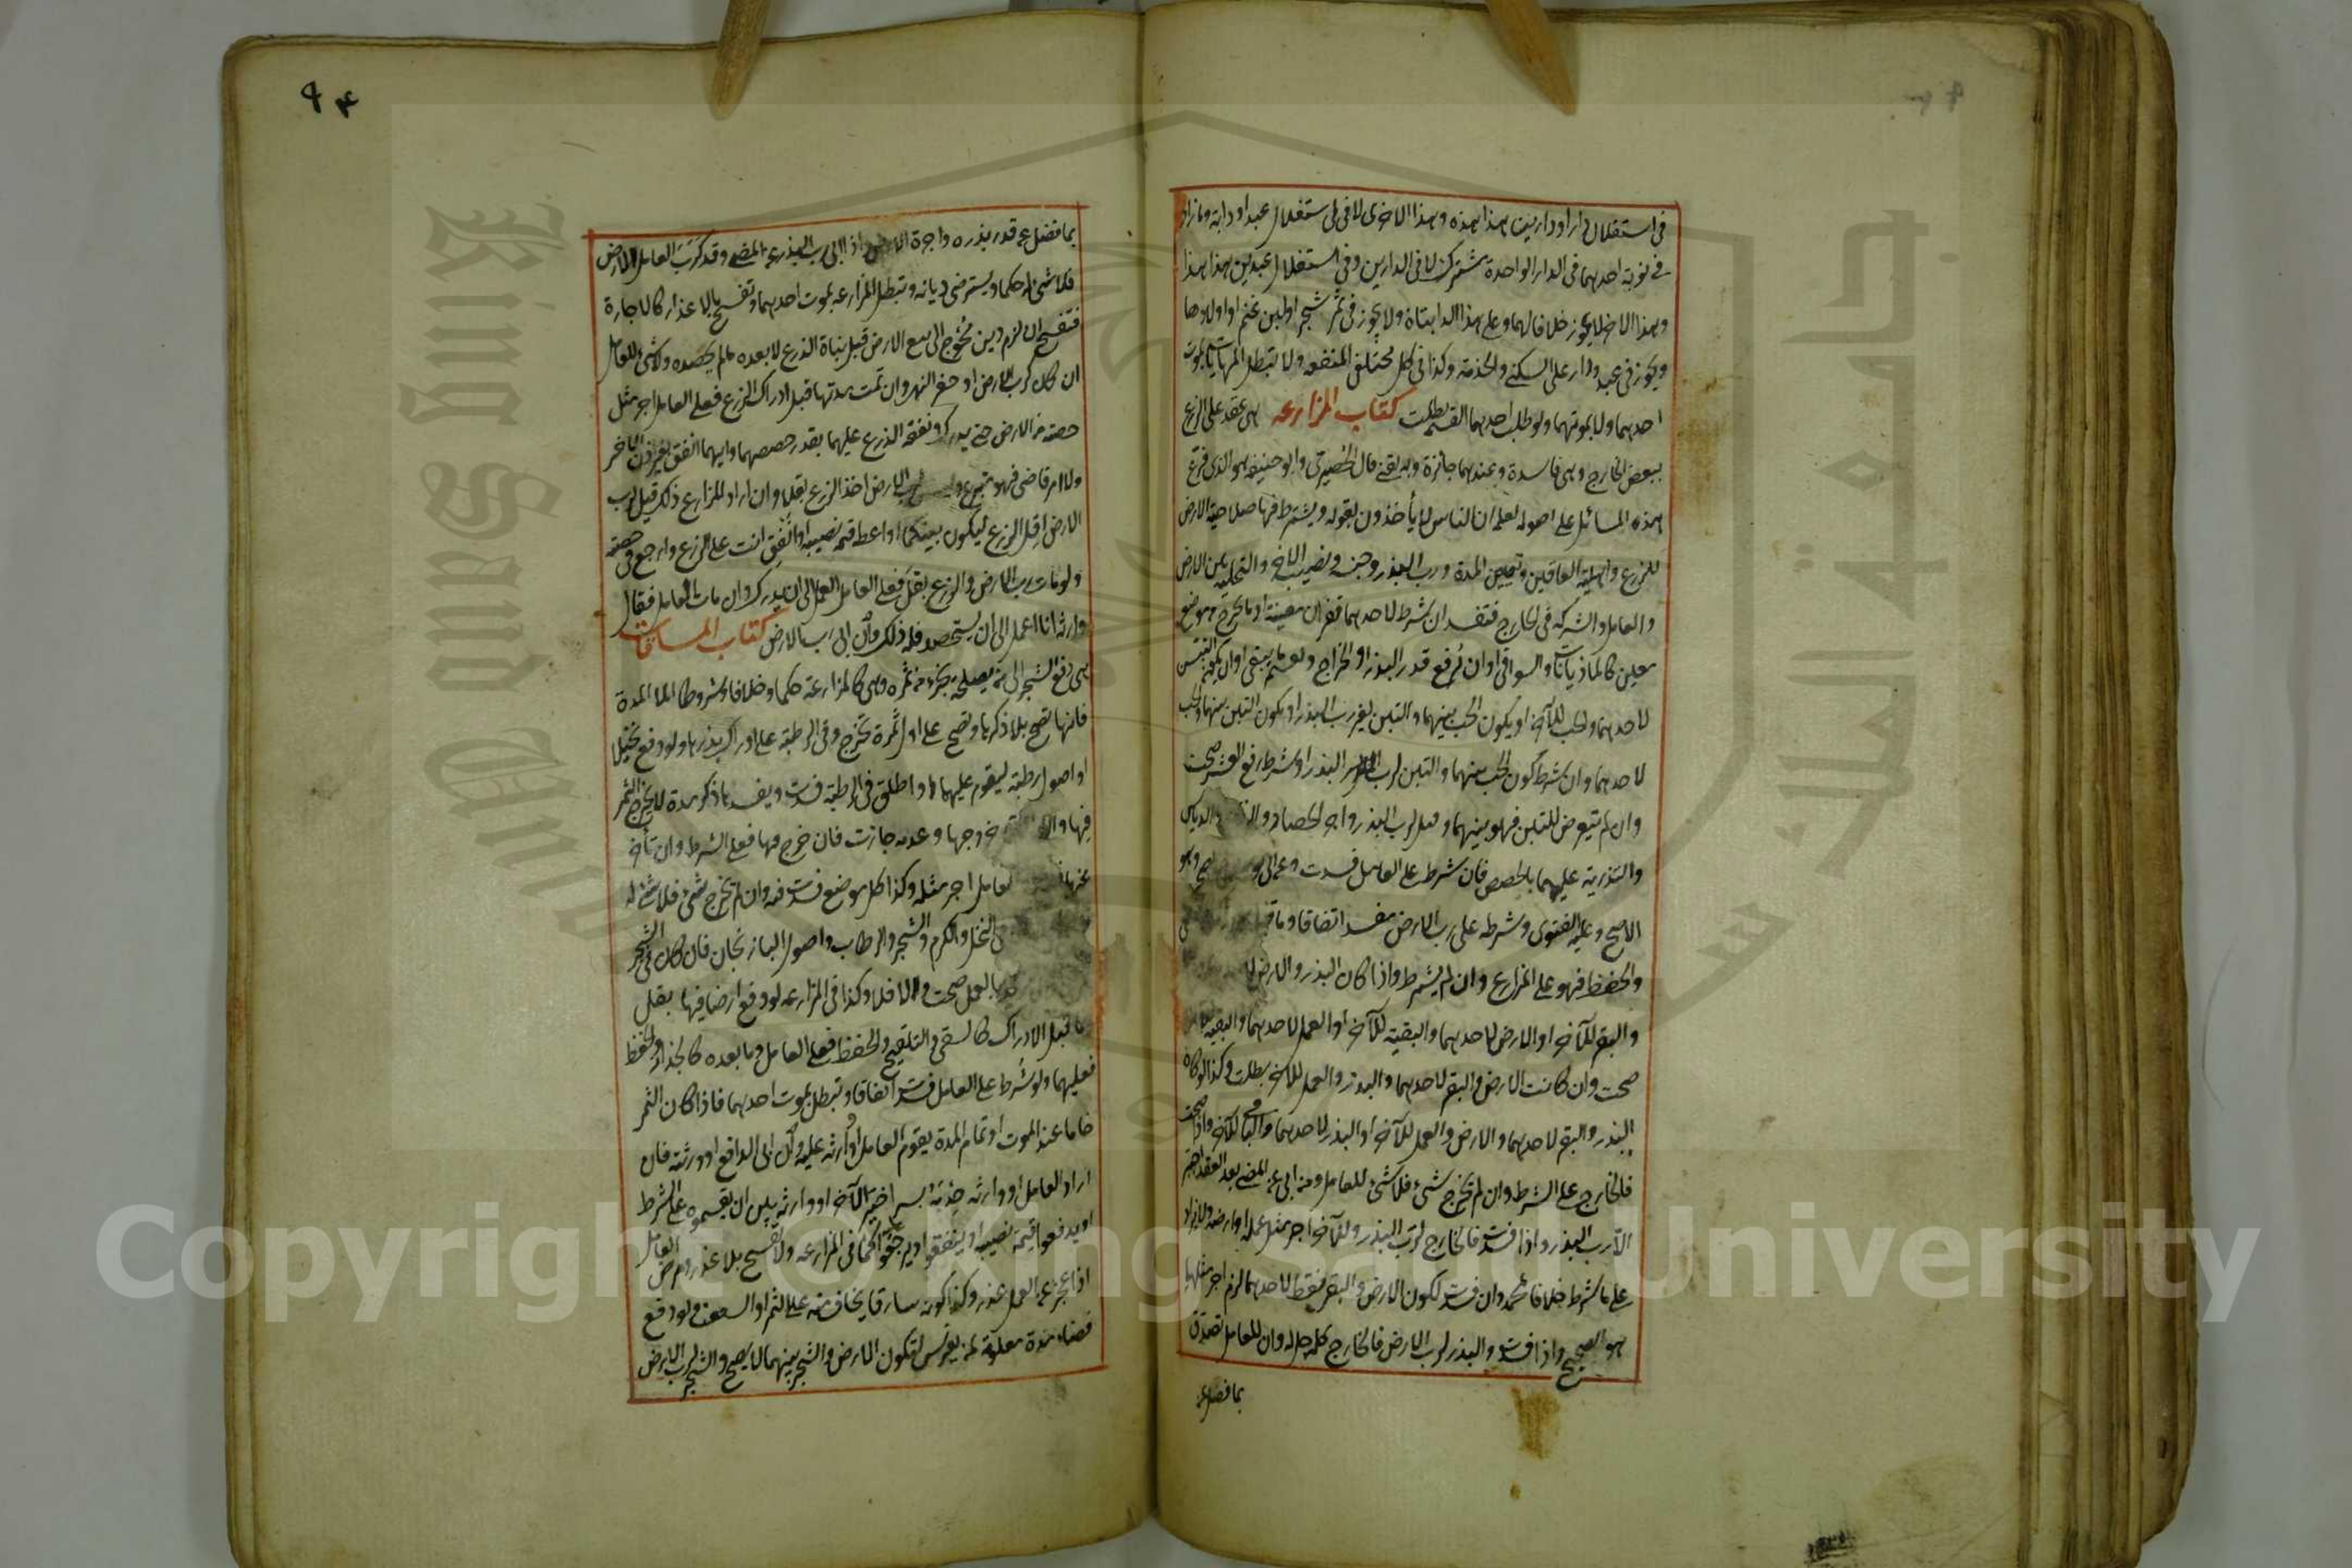 في استغلال دار او دارين هذا هذه وهذا الاخرى لا في استغلال عبد او دابة وما زاد
في نوبة احدهما في الدار الواحدة مشترك لا في الدارين وفي استغلال عبدين هذا هذا
وهذا الاخر لا يجوز خلافا لهما وعلى هذا الدابتان ولا يجوز في ثمر شجر او لبن غنم او اولادها
ويجوز في عبد ودار على السكنى والخدمة وكذا في كل مختلفي المنفعة ولا تبطل المهاياة بموت
احدهما ولا بموتهما ولو طلب احدهما القسمة بطلت كتاب المزارعه هي عقد على الزرع
ببعض الخارج وهي فاسدة وعندهما جائزة وبه يفتى قال الحصيري وابو حنيفة هو الذي فرع
هذه المسائل على اصوله لعلمه ان الناس لا يأخذون بقوله ويشترط فيها صلاحية الارض
للزرع واهلية العاقدين وتعيين المدة ورب البذر وجنسه ونصيب الاخر والتخلية بين الارض
والعامل والشركة في الخارج فتفسد ان شرط لاحدهما قفزان معينة او ما يخرج موضع
معين كالماذيانات والسواقي او ان يرفع قدر البذر او الخراج وقسم ما يبقى او ان يكون التبن
لاحدهما والحب للآخر او يكون الحب بينهما والتبن لغير رب البذر او يكون التبن بينهما والحب
لاحدهما وان شرط كون الحب بينهما والتبن لرب البذر او شرط رفع العشر صحت
وان لم يتعرض للتبن فهو بينهما وقيل لرب البذر واجر الحصاد والدياس
والتذرية عليهما بالحصص فان شرط على العامل فسدت وهو
الاصح وعليه الفتوى وشرطه على رب الارض مفسد اتفاقا وما
والحفظ فهو على المزارع وان لم يشترط واذا كان البذر والارض
والبقر للآخر او الارض لاحدهما والبقية للآخر او العمل لاحدهما والبقية
صحت وان كانت الارض والبقر لاحدهما والبذر والعمل للآخر بطلت وكذا لو كان
البذر والبقر لاحدهما والارض والعمل للآخر او البذر لاحدهما والباقي للآخر واذا صحت
فالخارج على الشرط وان لم يخرج شئ فلا شئ للعامل ومن ابى عن المضي بعد العقد اجبر
الا رب البذر واذا فسدت فالخارج لرب البذر وللآخر اجر مثل عمله او ارضه ولا يزاد
على ما شرط خلافا لمحمد وان فسدت لكون الارض والبقر فقط لاحدهما لزم اجر مثلهما
هو الصحيح واذا فسدت والبذر لرب الارض فالخارج كله حل له وان للعامل تصدق
بما فضل عن
٩٤
بما فضل عن قدر بذره واجرة الارض واذا ابى رب البذر عن المضي وقد كرب العامل الارض
فلا شئ له حكما ويسترضى ديانة وتبطل المزارعه بموت احدهما وتفسخ بالاعذار كالاجارة
فتفسخ ان لزم دين محوج الى بيع الارض قبل نبات الزرع لا بعده ما لم يحصد ولا شئ للعامل
ان كان كرب الارض او حفر النهر وان تمت مدتها قبل ادراك الزرع فعلى العامل اجر مثل
حصته من الارض حتى يدرك ونفقة الزرع عليهما بقدر حصصهما وايهما انفق بغير اذن الاخر
ولا امر قاضي فهو متبرع وليس لرب الارض اخذ الزرع بقلا وان اراد المزارع ذلك قيل لرب
الارض اقلع الزرع ليكون بينكما او اعط قيمة نصيبه او انفق انت على الزرع وارجع في حصته
ولو مات رب الارض والزرع بقل فعلى العامل العمل الى ان يدرك وان مات العامل فقال
وارثه انا اعمل الى ان يستحصد فله ذلك وان ابى رب الارض كتاب المساقات
هي دفع الشجر الى من يصلحه بجزء من ثمره وهي كالمزارعة حكما وخلافا وشروطا الا المدة
فانها تصح بلا ذكرها وتصح على اول ثمرة تخرج وفي الرطبة على ادراك بذرها ولو دفع نخيلا
او اصول رطبة ليقوم عليهما واطلق في الرطبة فسدت ويفسد ها ذكر مدة لا يخرج الثمر
فيها وان خروجها وعدمه جازت فان خرج فيها فعلى الشرط وان تأخر
عنها فللعامل اجر مثله وكذا كل موضع فسدت فيه وان لم يخرج شئ فلا شئ له
النخل والكرم والشجر والرطاب واصول الباذنجان فان كان في الشجر
بالعمل صحت والا فلا وكذا في المزارعه لو دفع ارضا فيها بقل
ما قبل الادراك كالسقي والتلقيح والحفظ فعلى العامل وما بعده كالجذاذ والحفظ
فعليهما ولو شرط على العامل فسدت اتفاقا وتبطل بموت احدهما فاذا كان الثمر
خاما عند الموت او تمام المدة يقوم العامل او وارثه عليه وان ابى الدافع او ورثته فان
اراد العامل او وارثه جذه بسرا خير الآخر او وارثه بين ان يقسموه على الشرط
او يدفعوا قيمة نصيبه او ينفقوا ويرجعوا كما في المزارعه ولا تفسخ بلا عذر ومرض العامل
اذا عجز عن العمل عذر وكذا كونه سارقا يخاف منه على الثمر او السعف ولو دفع
فضاء مدة معلومة لمن يغرس لتكون الارض والشجر بينهما لا يصح والشجر لرب الارض
Copyright © King Saud University
King Saud University
جامعة الملك سعود